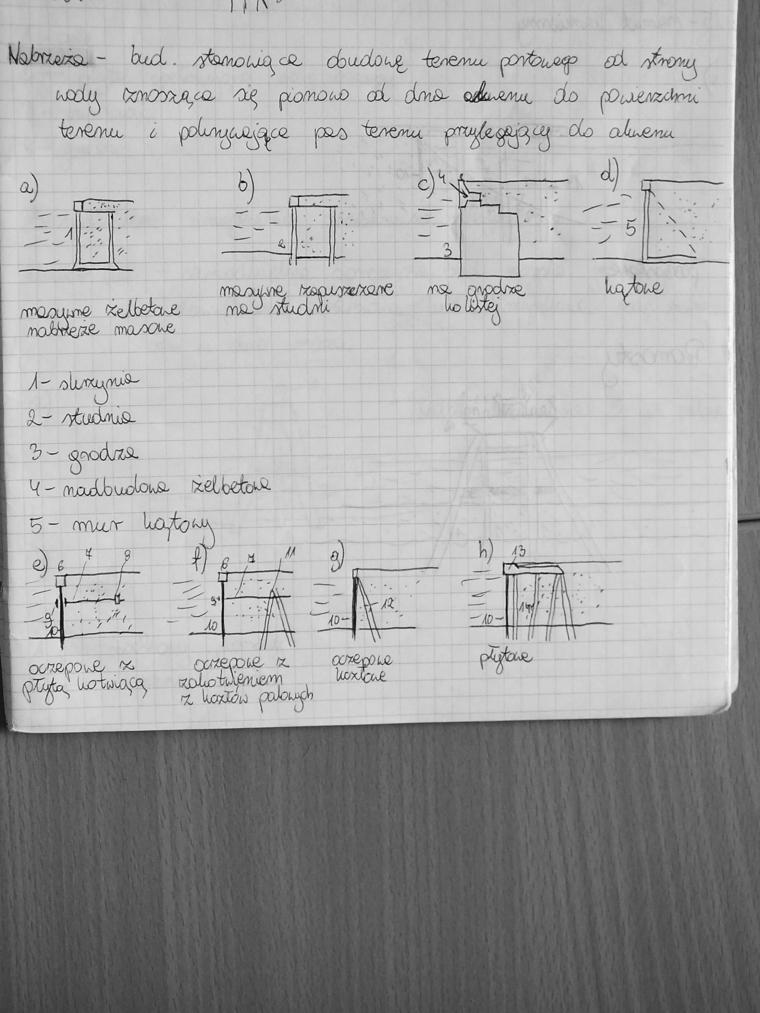 Nabrzeża - bud. stanowiące obudowę terenu portowego od strony
wody wznosząca się pionowo od dna akwenu do powierzchni
terenu i pokrywające pas terenu przylegający do akwenu
a) b) c) 4 d)
1 2 3 5
masywne żelbetowe
nabrzeże masowe
masywne zapuszczane
na studni
na grodzę
kolistej
kątowe
1 - skrzynia
2 - studnia
3 - grodza
4 - nadbudowa żelbetowa
5 - mur kątowy
e) 6 7 8 f) 6 7 11 g) h) 13
9 10 9 10 10 12 10 14
oczepowe z
płytą kotwiącą
oczepowe z
zakotwieniem
z kozłów palowych
oczepowe
kozłowe
płytowe